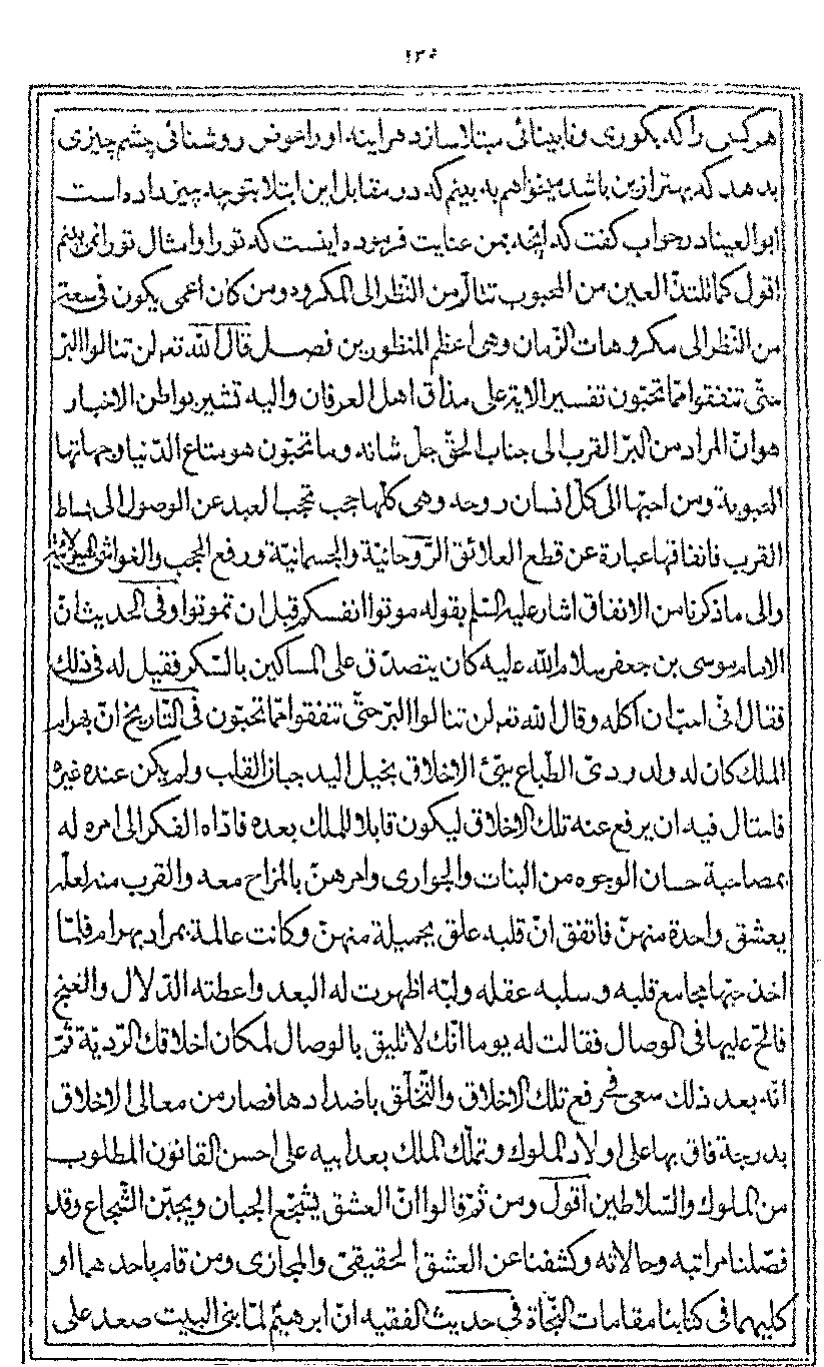 ١٣٥
هرکس را که بکوری ونابینائی مبتلا سازد هراینه اورا عوض روشنائی چشم چیزی
بدهد که بهتر ازین باشد میخواهم به بینم که در مقابل این ابتلا بتو چه چیز داده است
ابو العینا در جواب کفت که آنچه بمن عنایت فرموده اینست که تورا وامثال تورا نمی بینم
اقول کما تلتذ العین من المحبوب تتالّم من النّظر الی المکروه ومن کان اعمی یکون فی سعة
من النّظر الی مکروهات الزّمان وهی اعظم المنظورین فصل قال اللّه تعه لن تنالوا البرّ
حتّی تنفقوا ممّا تحبّون تفسیر الایة علی مذاق اهل العرفان والیه تشیر بواطن الاخبار
هو انّ المراد من البرّ القرب الی جناب الحقّ جلّ شانه وما تحبّون هو متاع الدّنیا وجهاتها
المحبوبة ومن احبّها الی کلّ انسان روحه وهی کلّها حجب تحجب العبد عن الوصول الی بساط
القرب فانفاقها عبارة عن قطع العلائق الرّوحانیّة والجسمانیّة ورفع الحجب والغواشی الهیولانیّة
والی ما ذکرنا من الانفاق اشار علیه السّلم بقوله موتوا انفسکم قبل ان تموتوا وفی الحدیث انّ
الامام موسی بن جعفر سلام اللّه علیه کان یتصدّق علی المساکین بالسّکر فقیل له فی ذلک
فقال انّی احبّ ان اکله وقال اللّه تعه لن تنالوا البرّ حتّی تنفقوا ممّا تحبّون فی التّاریخ انّ بهرام
الملک کان له ولد ردیّ الطّباع سیّئ الاخلاق بخیل الید جبان القلب ولم یکن عنده غیره
فاحتال فیه ان یرفع عنه تلک الاخلاق لیکون قابلا للملک بعده فادّاه الفکر الی امره له
بمصاحبة حسان الوجوه من البنات والجواری وامرهنّ بالمزاح معه والقرب منه لعلّه
یعشق واحدة منهنّ فاتفق انّ قلبه علق بجمیلة منهنّ وکانت عالمة بمراد بهرام فلمّا
اخذ حبّها مجامع قلبه وسلبه عقله ولبّه اظهرت له البعد واعطته الدّلال والغنج
فالحّ علیها فی الوصال فقالت له یوما انّک لا تلیق بالوصال لمکان اخلاقک الرّدیّة ثمّ
انّه بعد ذلک سعی فی رفع تلک الاخلاق والتّخلّق باضدادها فصار من معالی الاخلاق
بدرجة فاق بها علی اولاد الملوک وتملّک الملک بعد ابیه علی احسن القانون المطلوب
من الملوک والسّلاطین اقول ومن ثمّ قالوا انّ العشق یشجّع الجبان ویجبّن الشّجاع وقد
فصّلنا مراتبه وحالاته وکشفنا عن العشق الحقیقیّ والمجازی ومن قام باحدهما او
کلیهما فی کتابنا مقامات النّجاة فی حدیث الفقیه انّ ابرهیم لمّا بنی البیت صعد علی